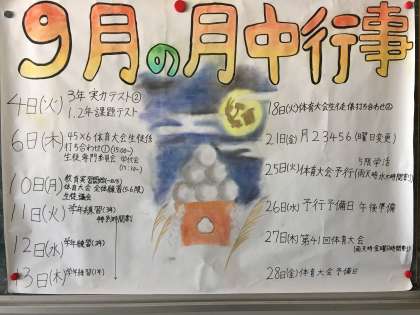 9月の月中行事
4日(火) 3年 実力テスト②
1.2年課題テスト
6日(木) 45×6 体育大会生徒係
打ち合わせ①(15:00~)
生徒専門委員会
10日(月) 教育実習開始
体育大会 全体練習(5.6限)
生徒議会
11日(火) 学年練習(3年)
特別時間割
12日(水) 学年練習(2年)
13日(木) 学年練習(1年)
18日(火)体育大会生徒係打ち合わせ②
21日(金)月23456(曜日変更)
5限学活
25日(火)体育大会予行(雨天時水木時間割)
26日(水)予行予備日 午後準備
27日(木)第41回体育大会
(雨天時金曜日時間割)
28日(金)体育大会予備日